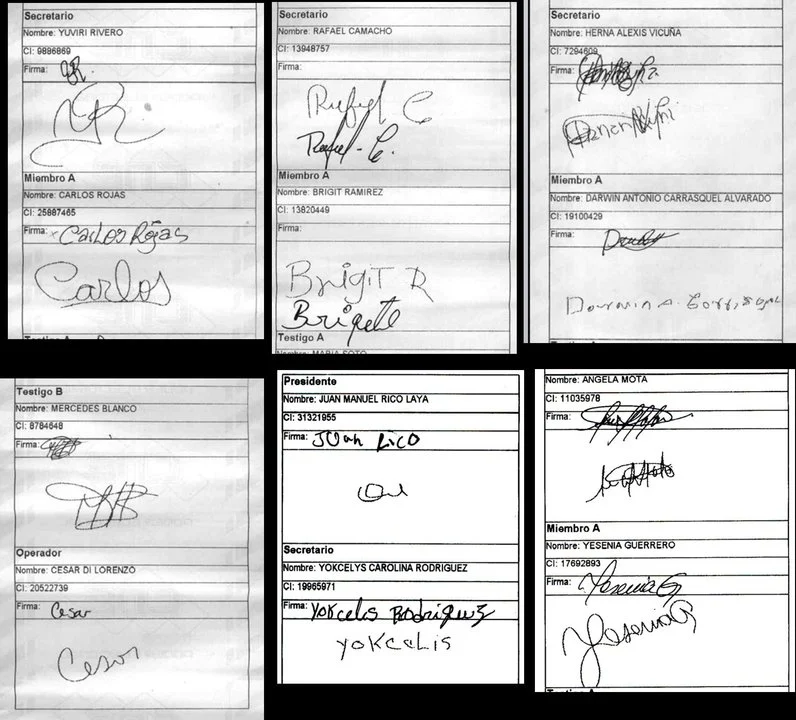 Secretario
Nombre: YUVIRI RIVERO
CI: 9886869
Firma: YR.
YR
Miembro A
Nombre: CARLOS ROJAS
CI: 25887465
Firma: Carlos Rojas
Carlos
Secretario
Nombre: RAFAEL CAMACHO
CI: 13948757
Firma:
Rafael C
Rafael C.
Miembro A
Nombre: BRIGIT RAMIREZ
CI: 13820449
Firma:
Brigit R
Brigete
Testigo A
Nombre: MARIA SOTO
Secretario
Nombre: HERNA ALEXIS VICUÑA
CI: 7294609
Firma:
Miembro A
Nombre: DARWIN ANTONIO CARRASQUEL ALVARADO
CI: 19100429
Firma:
Testigo B
Nombre: MERCEDES BLANCO
CI: 8784648
Firma:
Operador
Nombre: CESAR DI LORENZO
CI: 20522739
Firma: Cesar
Cesar
Presidente
Nombre: JUAN MANUEL RICO LAYA
CI: 31321955
Firma: JUan Rico
Secretario
Nombre: YOKCELYS CAROLINA RODRIGUEZ
CI: 19965971
Firma: Yokcelis Rodriguez
yoKceLis
Nombre: ANGELA MOTA
CI: 11035978
Firma:
Miembro A
Nombre: YESENIA GUERRERO
CI: 17692893
Firma: Yesenia G
Yesenia G